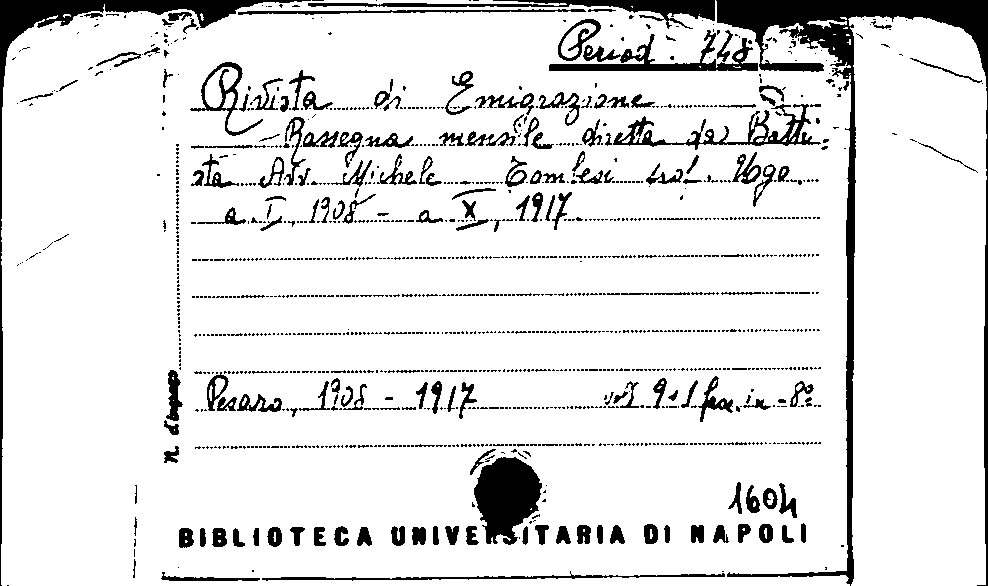 Period. 748
Rivista di Emigrazione
- Rassegna mensile diretta da Batti:
sta Avv. Michele. Tombesi prof. Ugo.
a. I, 1908 - a X, 1917.
Pesaro, 1908 - 1917
voll 9 e 1 fasc. in - 8º
N. d'ingresso
1604
BIBLIOTECA UNIVERSITARIA DI NAPOLI